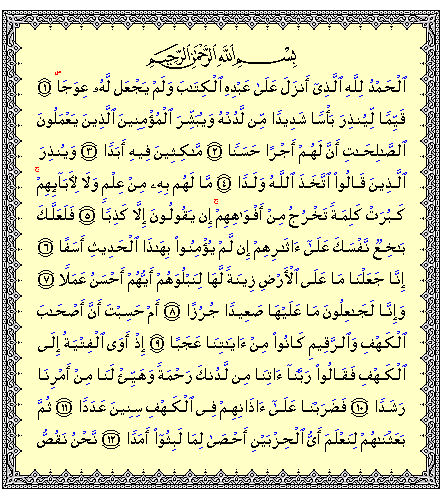 بِسْمِ اللَّهِ الرَّحْمَٰنِ الرَّحِيمِ
ٱلْحَمْدُ لِلَّهِ ٱلَّذِىٓ أَنزَلَ عَلَىٰ عَبْدِهِ ٱلْكِتَٰبَ وَلَمْ يَجْعَل لَّهُۥ عِوَجَاۜ ١
قَيِّمًا لِّيُنذِرَ بَأْسًا شَدِيدًا مِّن لَّدُنْهُ وَيُبَشِّرَ ٱلْمُؤْمِنِينَ ٱلَّذِينَ يَعْمَلُونَ
ٱلصَّٰلِحَٰتِ أَنَّ لَهُمْ أَجْرًا حَسَنًا ٢ مَّٰكِثِينَ فِيهِ أَبَدًا ٣ وَيُنذِرَ
ٱلَّذِينَ قَالُوا۟ ٱتَّخَذَ ٱللَّهُ وَلَدًا ٤ مَّا لَهُم بِهِۦ مِنْ عِلْمٍ وَلَا لِءَابَآئِهِمْۚ
كَبُرَتْ كَلِمَةً تَخْرُجُ مِنْ أَفْوَٰهِهِمْۚ إِن يَقُولُونَ إِلَّا كَذِبًا ٥ فَلَعَلَّكَ
بَٰخِعٌ نَّفْسَكَ عَلَىٰٓ ءَاثَٰرِهِمْ إِن لَّمْ يُؤْمِنُوا۟ بِهَٰذَا ٱلْحَدِيثِ أَسَفًا ٦
إِنَّا جَعَلْنَا مَا عَلَى ٱلْأَرْضِ زِينَةً لَّهَا لِنَبْلُوَهُمْ أَيُّهُمْ أَحْسَنُ عَمَلًا ٧
وَإِنَّا لَجَٰعِلُونَ مَا عَلَيْهَا صَعِيدًا جُرُزًا ٨ أَمْ حَسِبْتَ أَنَّ أَصْحَٰبَ
ٱلْكَهْفِ وَٱلرَّقِيمِ كَانُوا۟ مِنْ ءَايَٰتِنَا عَجَبًا ٩ إِذْ أَوَى ٱلْفِتْيَةُ إِلَى
ٱلْكَهْفِ فَقَالُوا۟ رَبَّنَآ ءَاتِنَا مِن لَّدُنكَ رَحْمَةً وَهَيِّئْ لَنَا مِنْ أَمْرِنَا
رَشَدًا ١٠ فَضَرَبْنَا عَلَىٰٓ ءَاذَانِهِمْ فِى ٱلْكَهْفِ سِنِينَ عَدَدًا ١١ ثُمَّ
بَعَثْنَٰهُمْ لِنَعْلَمَ أَىُّ ٱلْحِزْبَيْنِ أَحْصَىٰ لِمَا لَبِثُوٓا۟ أَمَدًا ١٢ نَّحْنُ نَقُصُّ